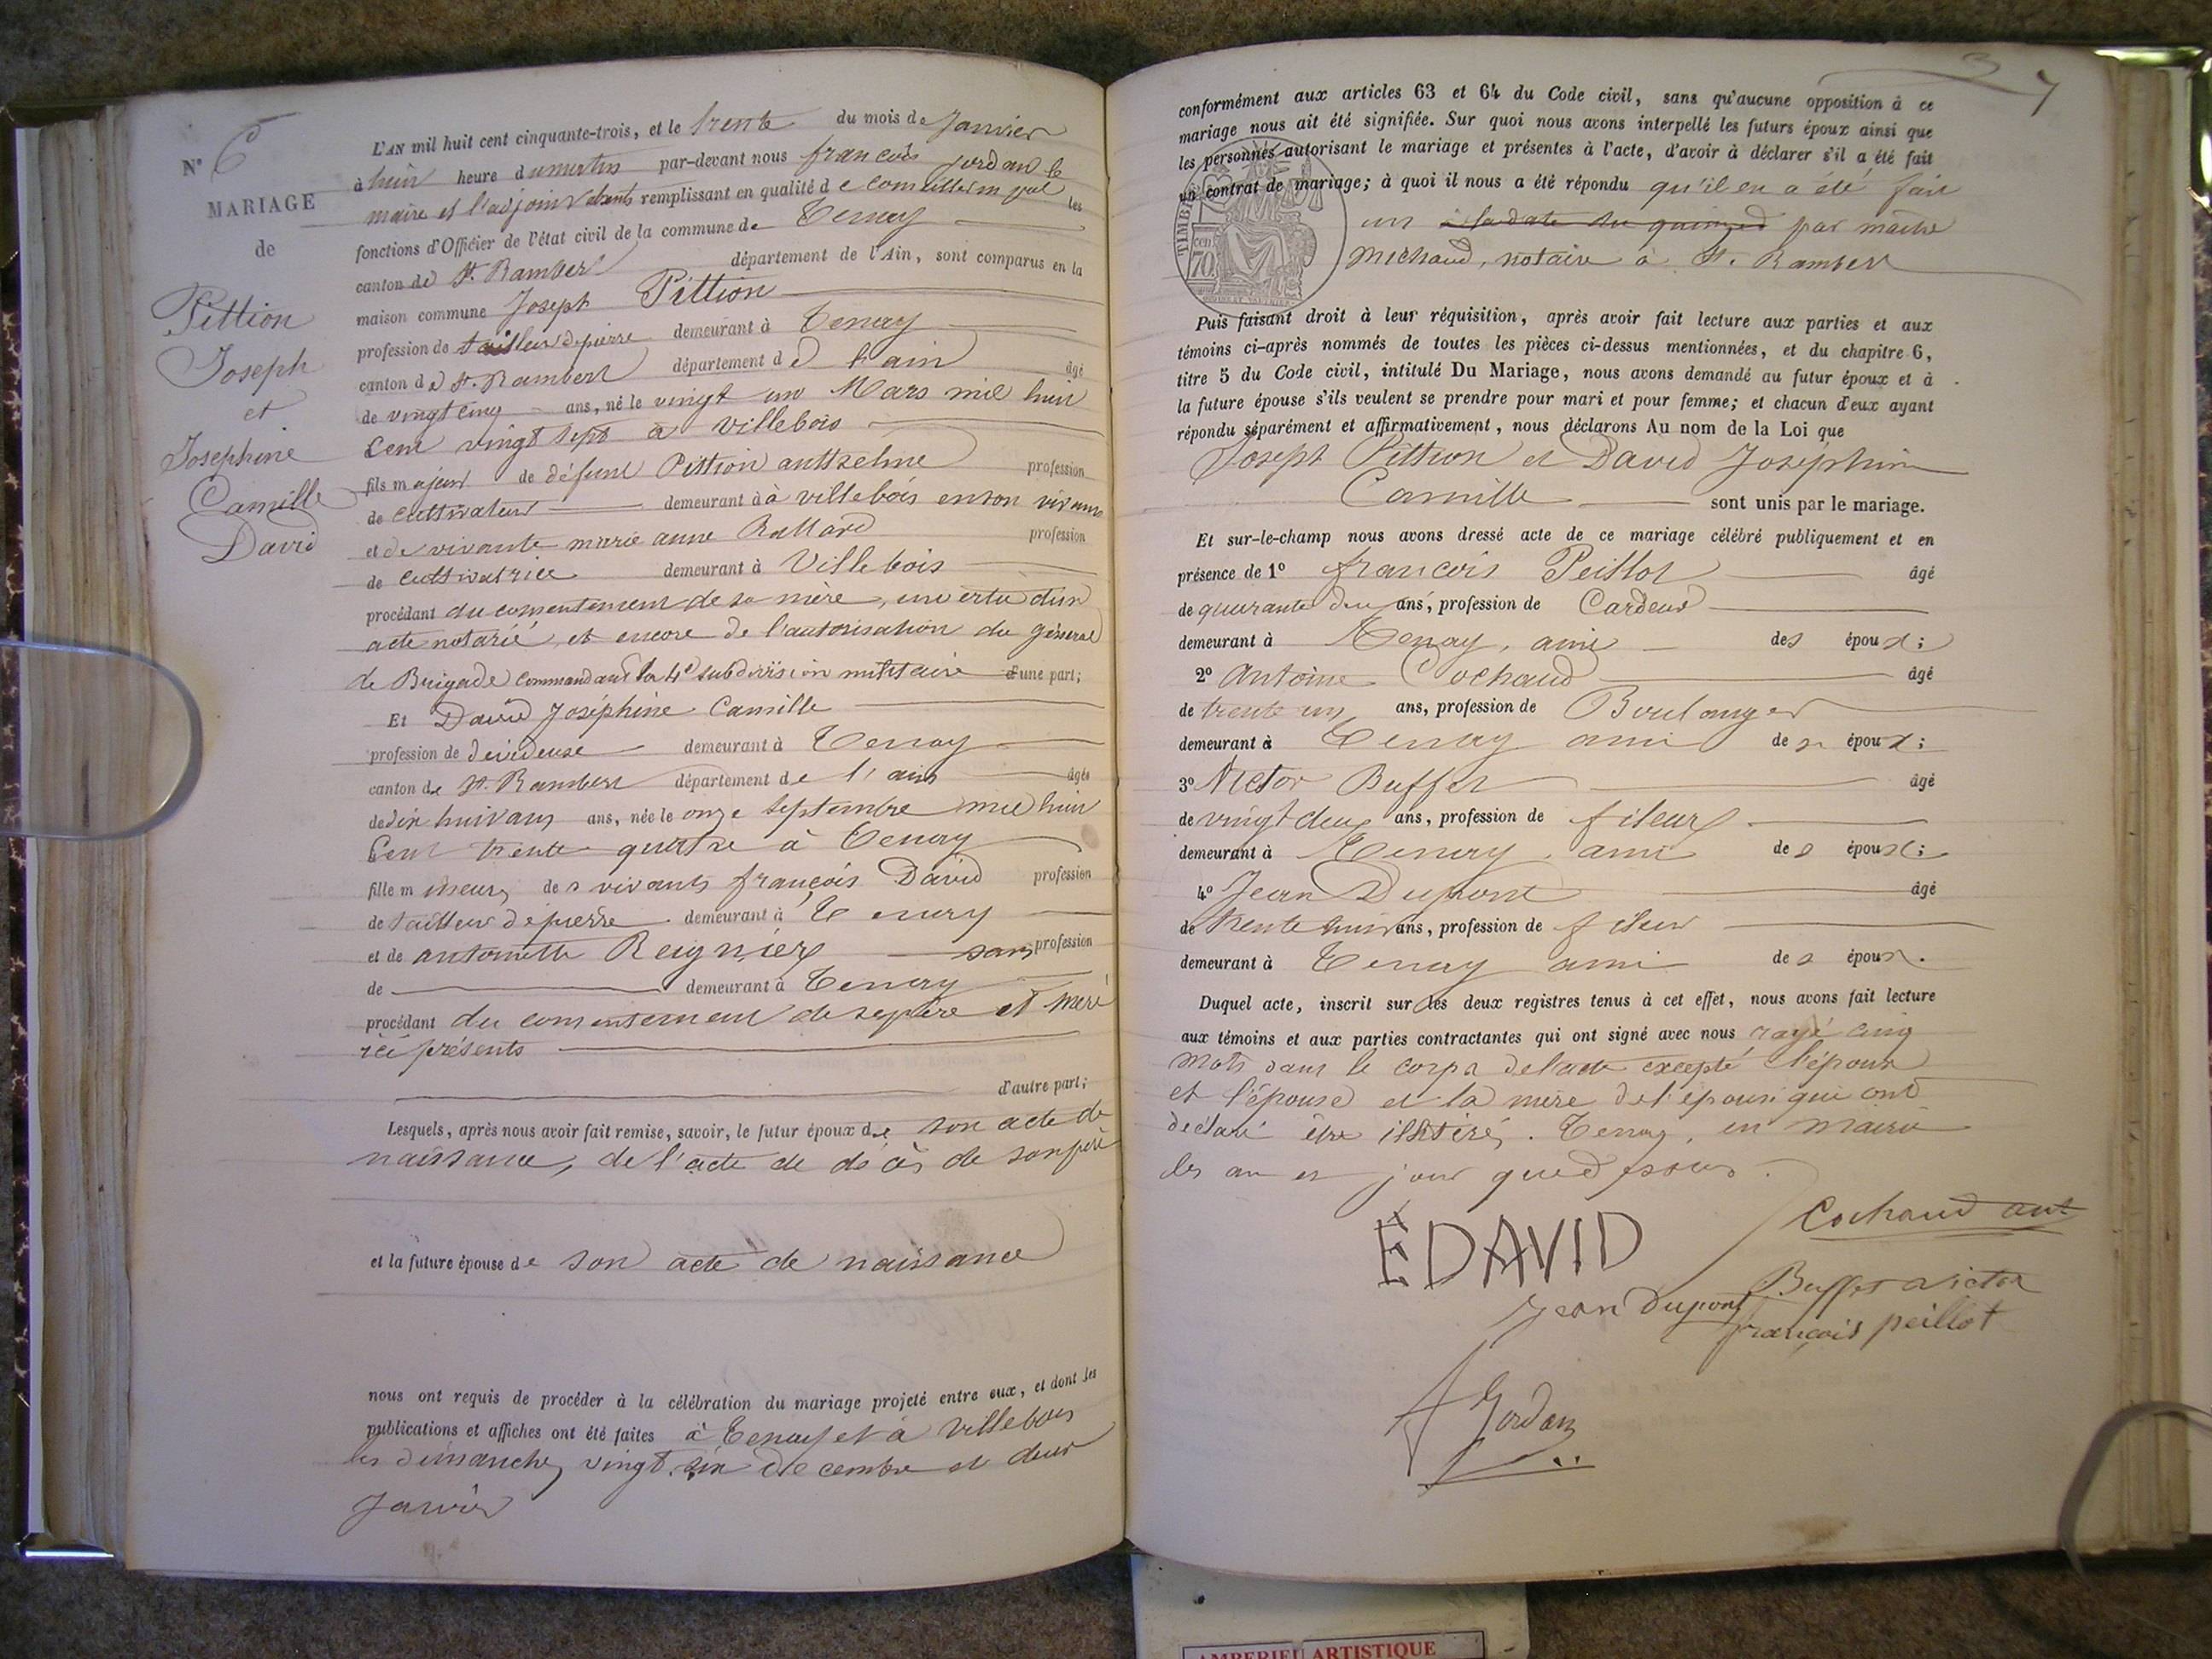 N° 6
MARIAGE
de
Pittion
Joseph
et
Josephine
Camille
David
L'AN mil huit cent cinquante-trois, et le trente du mois de Janvier
à huit heure du matin par-devant nous françois Jordan le
maire et l'adjoint absents remplissant en qualité de conseiller mpal les
fonctions d'Officier de l'état civil de la commune de Tenay
canton de St. Rambert département de l'Ain, sont comparus en la
maison commune Joseph Pittion
profession de tailleur de pierre demeurant à Tenay
canton de St. Rambert département de l'ain âgé
de vingt cinq ans, né le vingt un Mars mil huit
Cent vingt sept à Villebois
fils majeur de défunt Pittion anthelme profession
de cultivateur demeurant à à villebois en son vivant
et de vivante marie anne profession
de cultivatrice demeurant à Villebois
procédant du consentement de sa mère, en vertu d'un
acte notarié, et encore de l'autorisation du général
de Brigade commandant la 4e subdivision militaire d'une part;
Et David Joséphine Camille
profession de devideuse demeurant à Tenay
canton de St. Rambert département de l'ain âgée
de dix huit ans ans, née le onze septembre mil huit
Cent trente quatre à Tenay
fille mineure des vivants françois David profession
de tailleur de pierre demeurant à Tenay
et de antoinette Reignier sans profession
de demeurant à Tenay
procédant du consentement de ses père et mère
ici présents
d'autre part;
Lesquels, après nous avoir fait remise, savoir, le futur époux de son acte de
naissance, de l'acte de décès de son père
et la future épouse de son acte de naissance
nous ont requis de procéder à la célébration du mariage projeté entre eux, et dont les
publications et affiches ont été faites à Tenay et à Villebois
les dimanches vingt six décembre et deux
Janvier
3
7
conformément aux articles 63 et 64 du Code civil, sans qu'aucune opposition à ce
mariage nous ait été signifiée. Sur quoi nous avons interpellé les futurs époux ainsi que
les personnes autorisant le mariage et présentes à l'acte, d'avoir à déclarer s'il a été fait
un contrat de mariage; à quoi il nous a été répondu qu'il en a été fait
un à la date du quinze par maitre
Michaud, notaire à St. Rambert
TIMBRE
cent
70
Puis faisant droit à leur réquisition, après avoir fait lecture aux parties et aux
témoins ci-après nommés de toutes les pièces ci-dessus mentionnées, et du chapitre 6,
titre 5 du Code civil, intitulé Du Mariage, nous avons demandé au futur époux et à
la future épouse s'ils veulent se prendre pour mari et pour femme; et chacun d'eux ayant
répondu séparément et affirmativement, nous déclarons Au nom de la Loi que
Joseph Pittion et David Josephine
Camille sont unis par le mariage.
Et sur-le-champ nous avons dressé acte de ce mariage célébré publiquement et en
présence de 1° françois Peillot âgé
de quarante deux ans, profession de Cardeur
demeurant à Tenay, ami des époux;
2° Antoine Cochaud âgé
de trente un ans, profession de Boulanger
demeurant à Tenay ami des époux;
3° Victor Buffet âgé
de vingt deux ans, profession de fileur
demeurant à Tenay ami des époux;
4° Jean Dupont âgé
de trente huit ans, profession de fileur
demeurant à Tenay ami des époux.
Duquel acte, inscrit sur les deux registres tenus à cet effet, nous avons fait lecture
aux témoins et aux parties contractantes qui ont signé avec nous rayé cinq
mots dans le corps de l'acte excepté l'époux
et l'épouse et la mère de l'épouse qui ont
déclaré être illitéré. Tenay, en mairie
les an et jour que dessus.
Cochaud ant
E DAVID
Buffet victor
Jean Dupont
françois peillot
f Jordan
AMBERIEU ARTISTIQUE